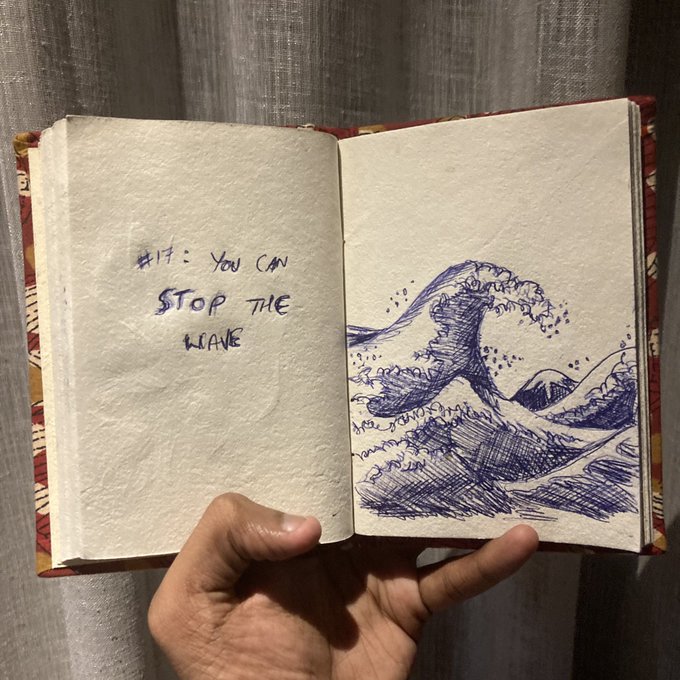 #17: YOU CAN
STOP THE
WAVE